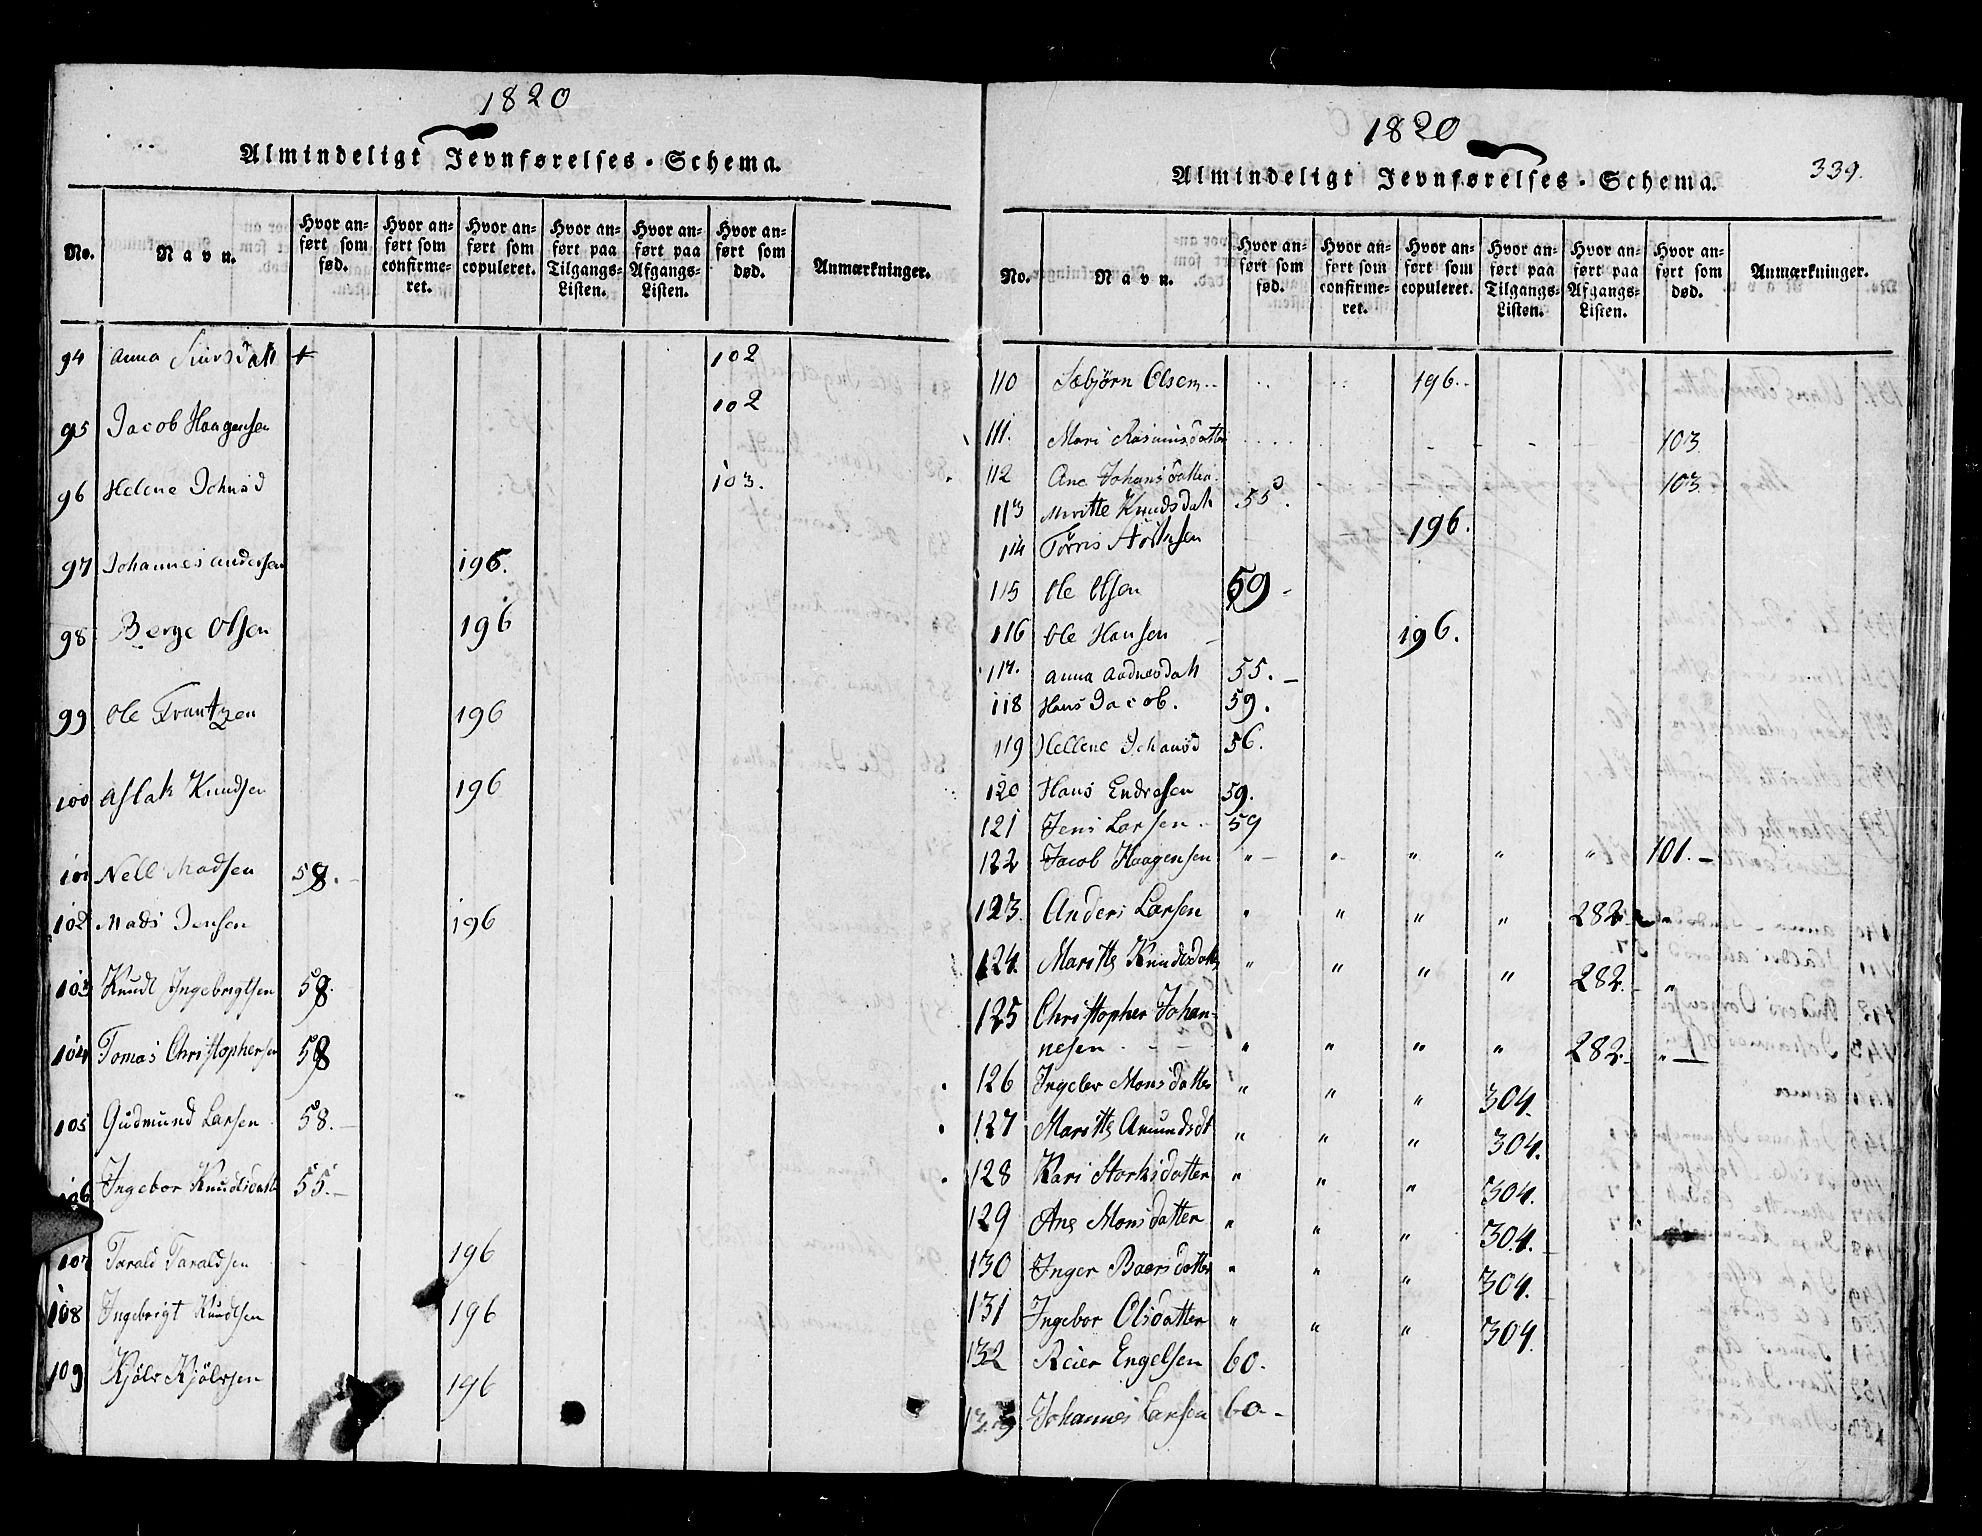 1820
Almindeligt Jevnførelses-Schema.
No. Navn. Hvor anført som fød. Hvor anført som confirmeret. Hvor anført som copuleret. Hvor anført paa Tilgangs-Listen. Hvor anført paa Afgangs-Listen. Hvor anført som død. Anmærkninger.
94 Anna 102
95 Jacob Haagensen 102
96 Helene Johnsd 103.
97 Johannes andersen 196.
98 Berge Olsen 196
99 Ole Frantzen 196
100 Aslak Knudsen 196
101 Nell Madsen 58.
102 Mads Jensen 196
103 Knudt Ingebrigtsen 58.
104 Tomas Christophersen 58
105 Gudmund Larsen 58.
106 Ingebor Knudtsdatt 55.
107 Tarald Taraldsen 196
108 Ingebrigt Knudtsen 196
109 Kjölv Kjölvsen 196
1820
Almindeligt Jevnførelses-Schema.
339.
No. Navn. Hvor anført som fød. Hvor anført som confirmeret. Hvor anført som copuleret. Hvor anført paa Tilgangs-Listen. Hvor anført paa Afgangs-Listen. Hvor anført som død. Anmærkninger.
110 Sæbjørn Olsen 196.
111. Mari Rasmusdatter 103
112 Ane Johansdatter 103
113 Maritte Knudsdatt 55.
114 Torris 196.
115 Ole Olsen 59
116 Ole Hansen 196.
117. Anna Aadnesdatt 55.
118 Hans Jacob. 59.
119 Hellene Johansd 56.
120 Hans Endresen 59.
121 Jens Larsen 59
122 Jacob Haagensen " " " " " 101.
123. Anders Larsen " " " " 282. "
124. Maritte Knudtsdatter " " " " 282. "
125 Christopher Johan-
nesen " " " " 282. "
126 Ingebor Monsdatter " " " 304.
127 Maritte Amundsdt " " " 304.
128 Kari Storksdatter " " " 304.
129 Ane Monsdatter " " " 304.
130 Inger Baarsdatter " " " 304.
131 Ingebor Olsdatter " " " 304.
132 Reier Engelsen 60.
133 Johannes Larsen 60